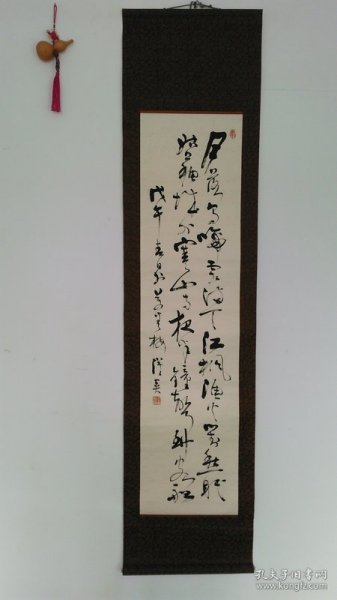 月落乌啼霜满天江枫渔火对愁眠
姑苏城外寒山寺夜半钟声到客船
戊午春日
孔夫子旧书网
www.kongfz.com